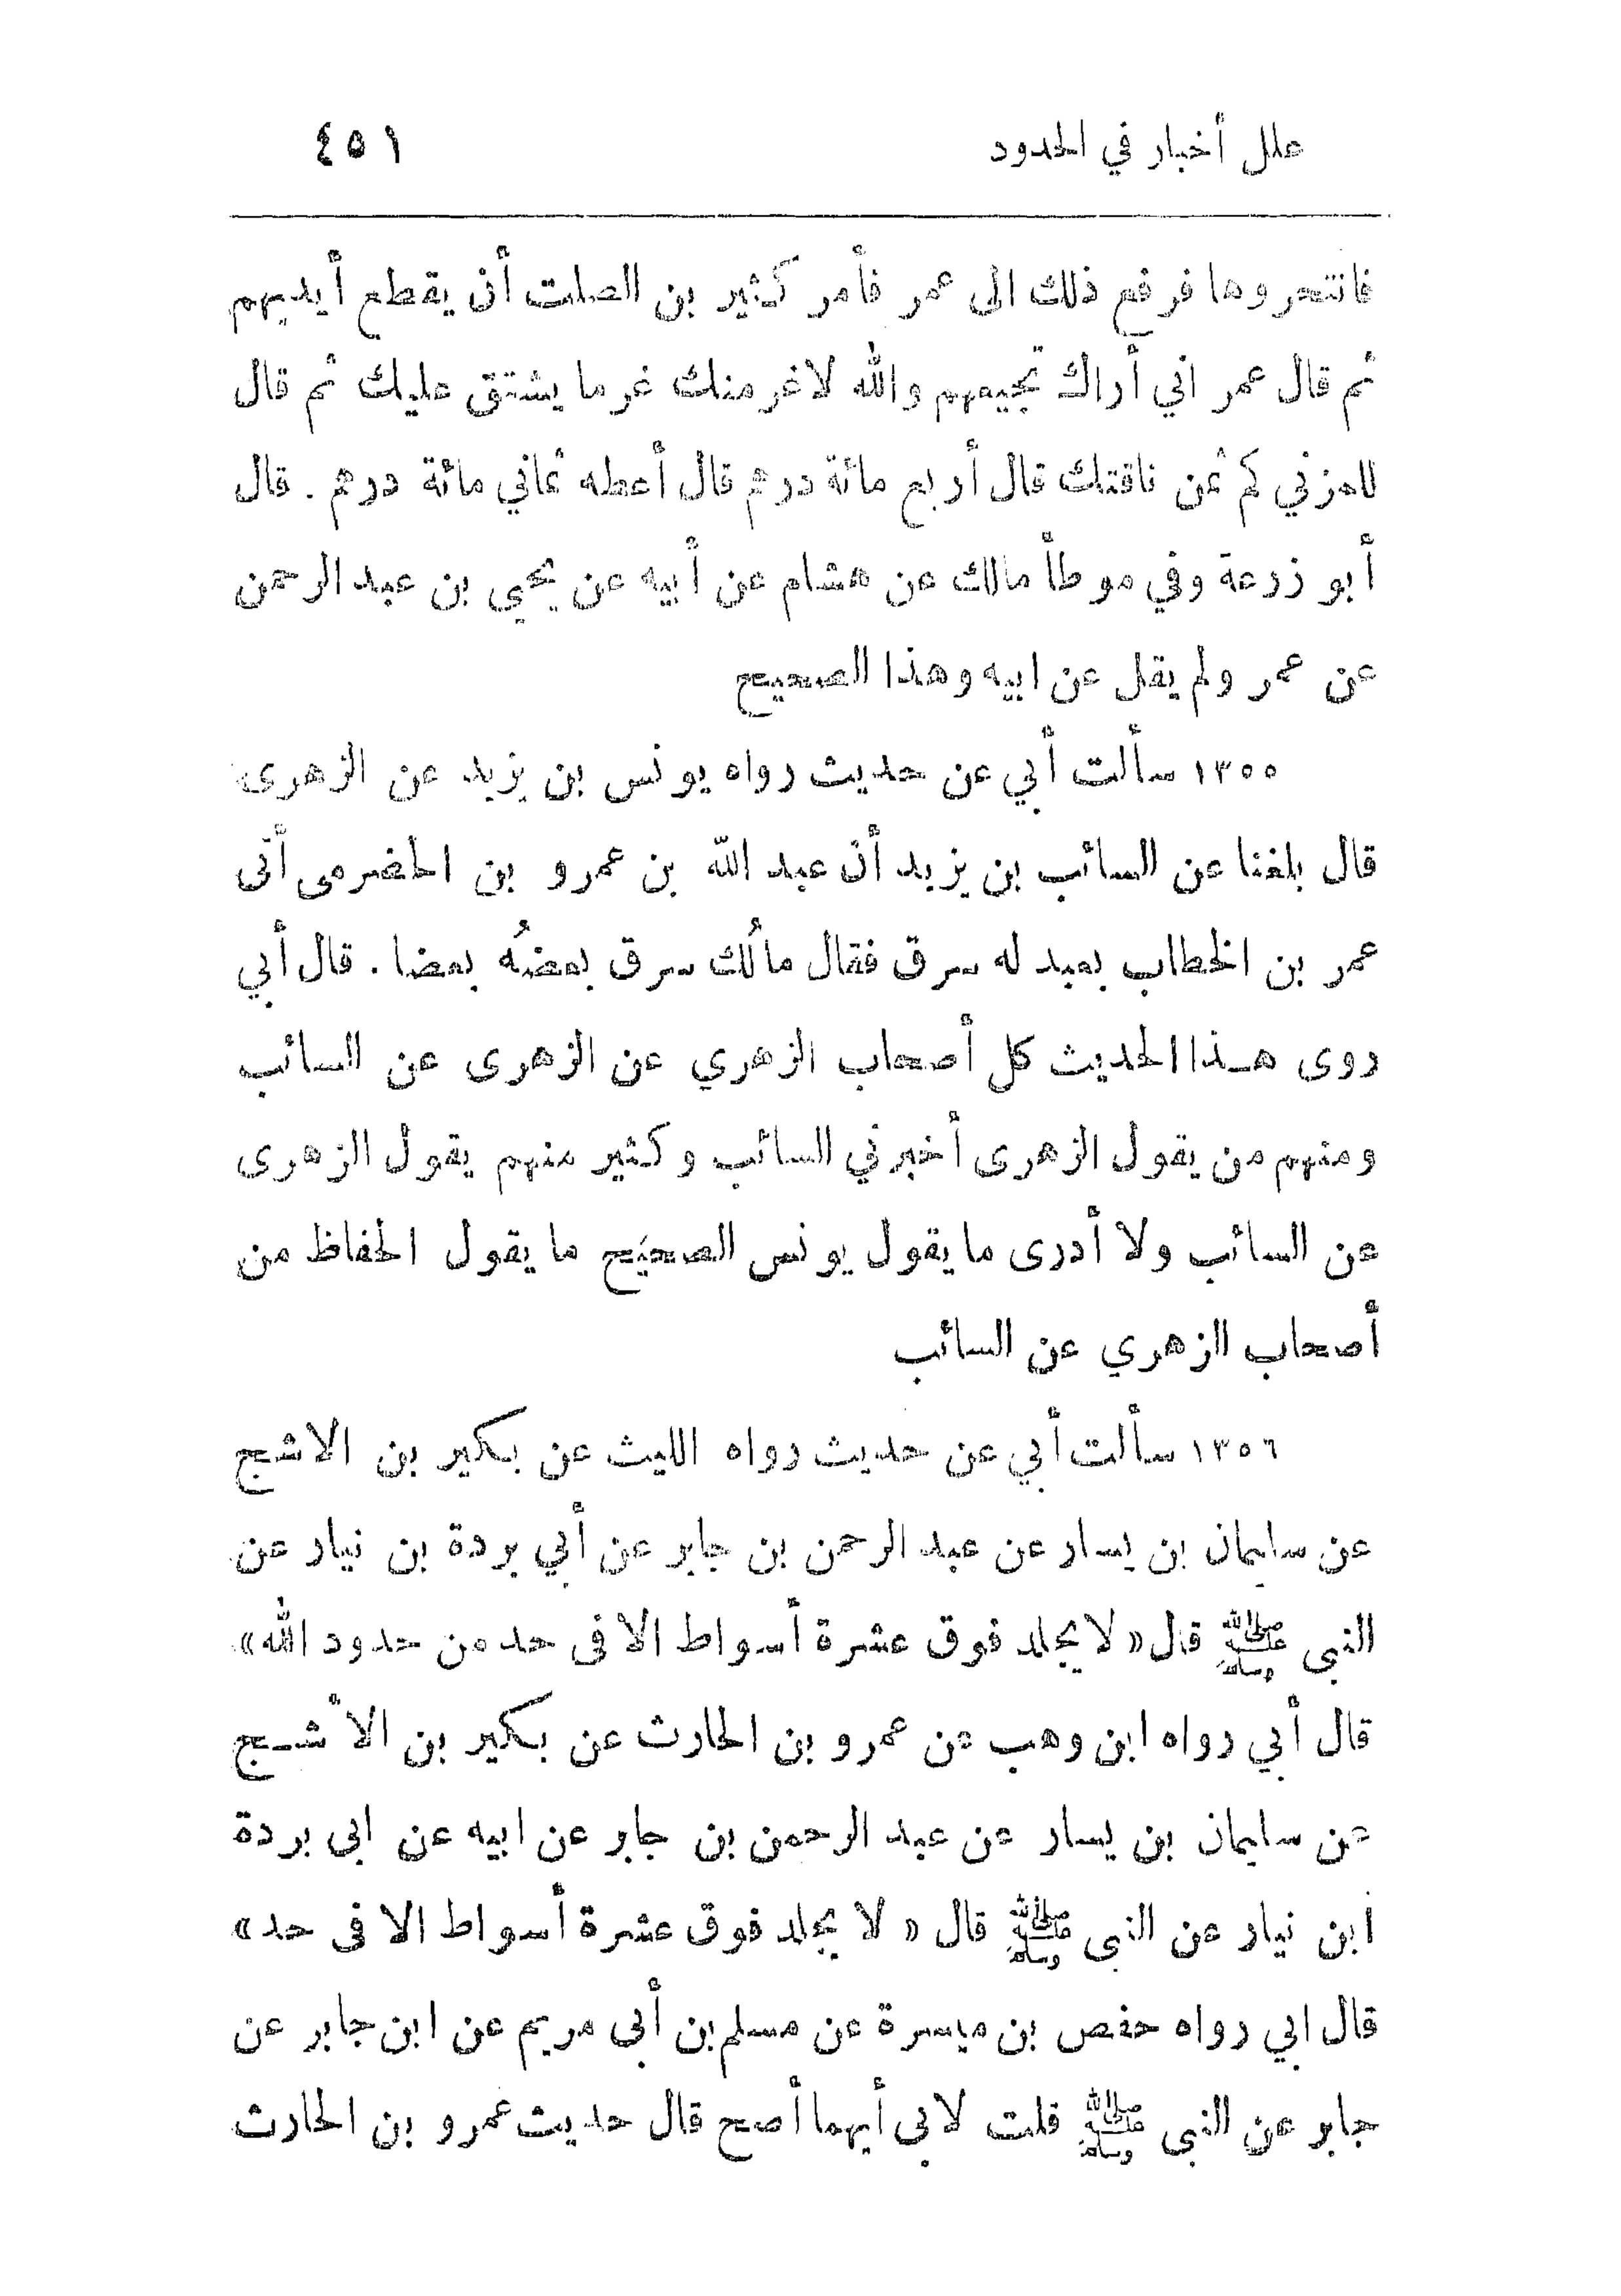 علل أخبار في الحدود ٤٥١
فانتحروها فرفع ذلك الى عمر فأمر كثير بن الصلت أن يقطع أيديهم
ثم قال عمر اني أراك تجيعهم والله لاغرمنك غرما يشتق عليك ثم قال
للمزني كم ثمن ناقتك قال أربع مائة درهم قال أعطه ثماني مائة درهم . قال
أبو زرعة وفي موطأ مالك عن هشام عن أبيه عن يحيى بن عبد الرحمن
عن عمر ولم يقل عن ابيه وهذا الصحيح
١٣٥٥ سألت أبي عن حديث رواه يونس بن يزيد عن الزهرى
قال بلغنا عن السائب بن يزيد أن عبد الله بن عمرو بن الحضرمى أتى
عمر بن الخطاب بعبد له سرق فقال مالُك سرق بعضُه بعضا . قال أبي
روى هذا الحديث كل أصحاب الزهري عن الزهرى عن السائب
ومنهم من يقول الزهرى أخبرني السائب وكثير منهم يقول الزهرى
عن السائب ولا أدرى ما يقول يونس الصحيح ما يقول الحفاظ من
أصحاب الزهري عن السائب
١٣٥٦ سألت أبي عن حديث رواه الليث عن بكير بن الاشج
عن سليمان بن يسار عن عبد الرحمن بن جابر عن أبي بردة بن نيار عن
النبى ﷺ قال « لا يجلد فوق عشرة أسواط الا فى حد من حدود الله »
قال أبي رواه ابن وهب عن عمرو بن الحارث عن بكير بن الأشج
عن سليمان بن يسار عن عبد الرحمن بن جابر عن ابيه عن ابى بردة
ابن نيار عن النبى ﷺ قال « لا يجلد فوق عشرة أسواط الا فى حد »
قال ابي رواه حفص بن ميسرة عن مسلم بن أبى مريم عن ابن جابر عن
جابر عن النبى ﷺ قلت لابى أيهما أصح قال حديث عمرو بن الحارث